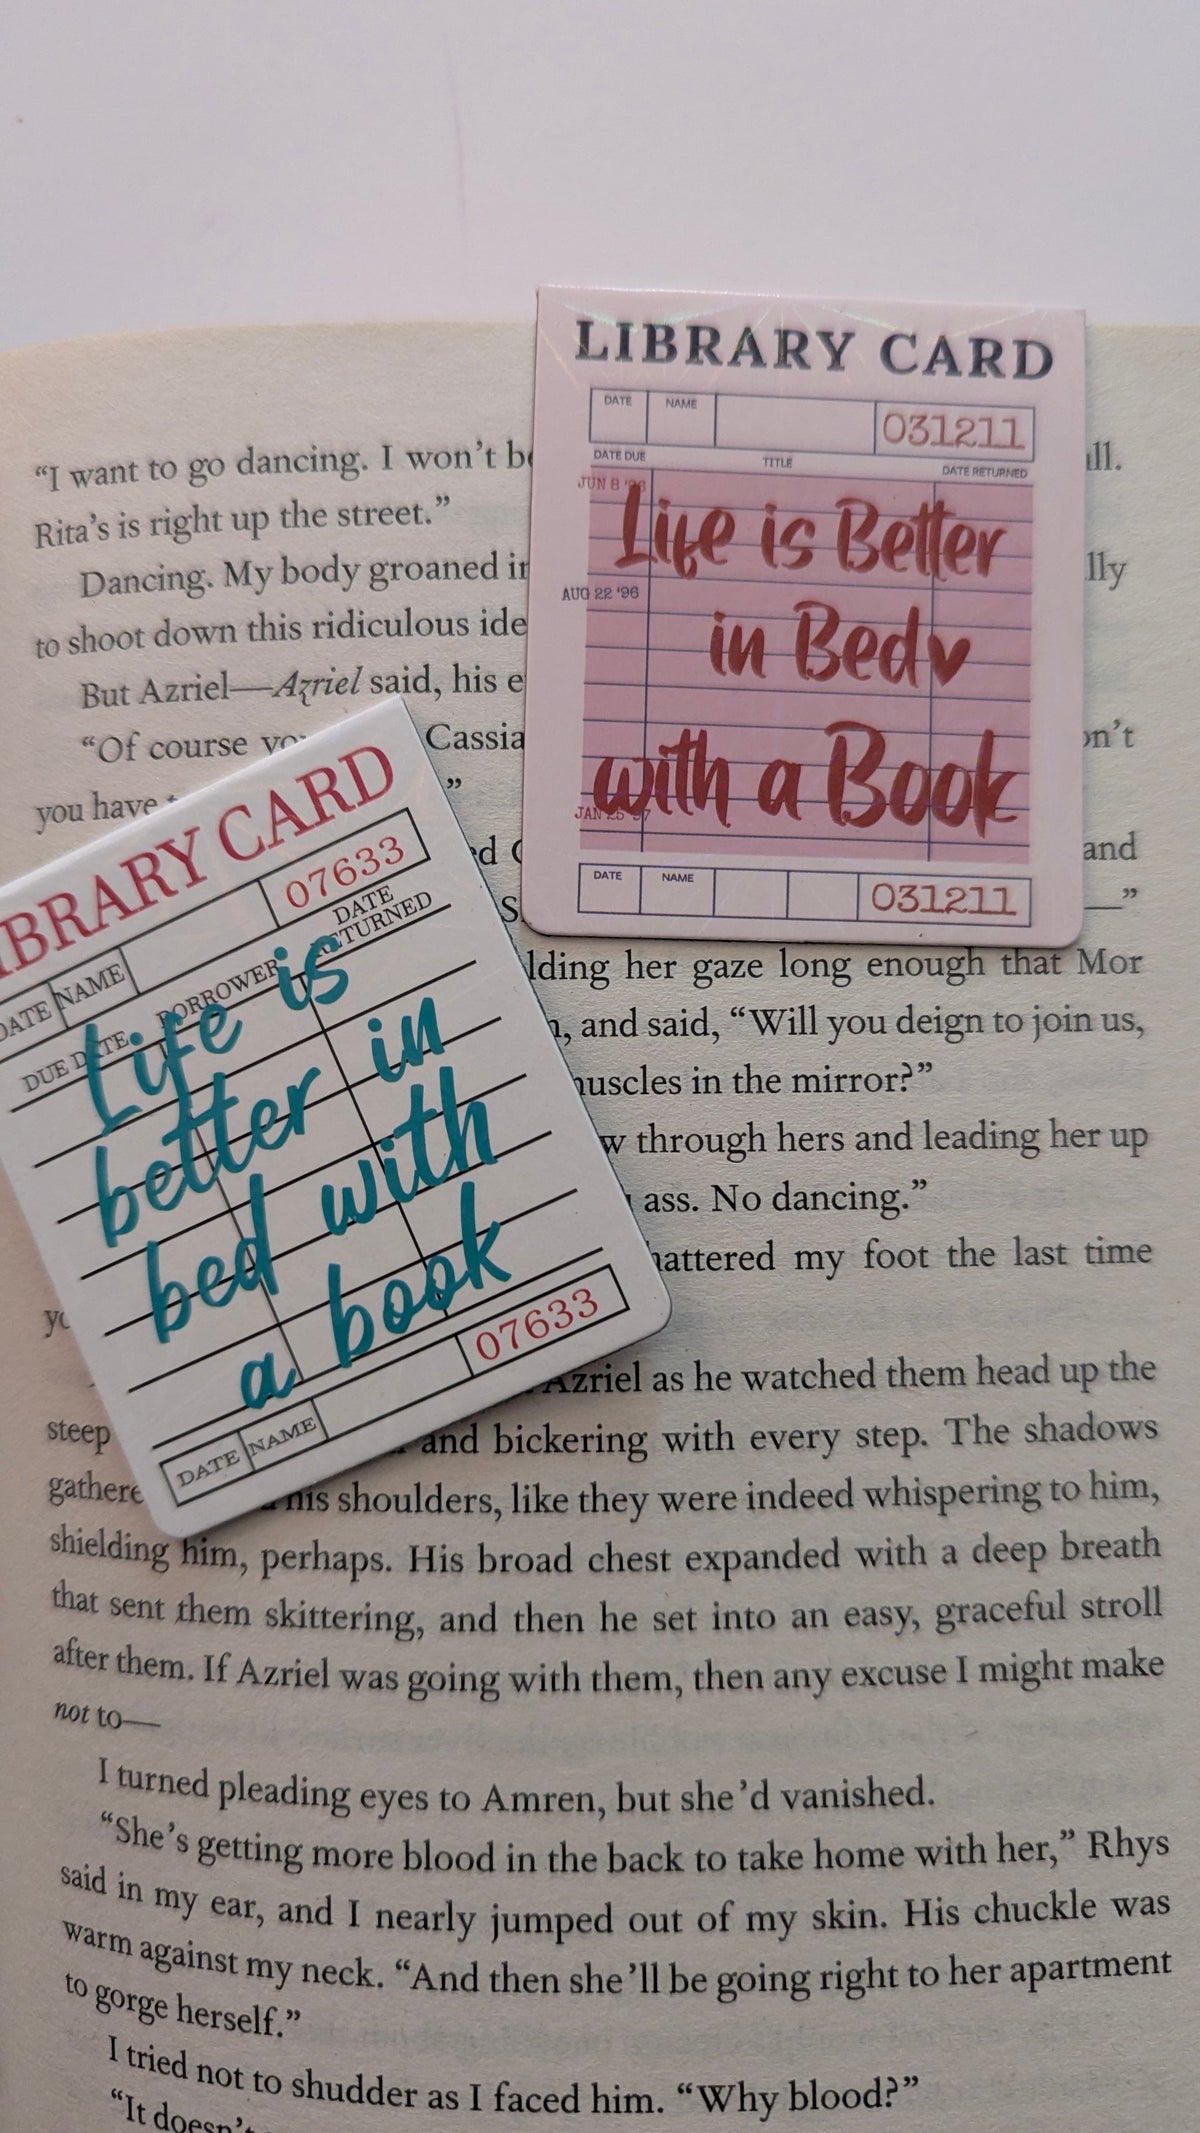 “I want to go dancing. I won’t
Rita’s is right up the street.”
Dancing. My body groaned
to shoot down this ridiculous
But Azriel—Azriel said, his
“Of course
Cassia
on’t
you have
”
and
—”
lding her gaze long enough that Mor
and said, “Will you deign to join us,
muscles in the mirror?”
through hers and leading her up
ass. No dancing.”
hattered my foot the last time
Azriel as he watched them head up the
steep
and bickering with every step. The shadows
gathere
his shoulders, like they were indeed whispering to him,
shielding him, perhaps. His broad chest expanded with a deep breath
that sent them skittering, and then he set into an easy, graceful stroll
after them. If Azriel was going with them, then any excuse I might make
not to—
I turned pleading eyes to Amren, but she’d vanished.
“She’s getting more blood in the back to take home with her,” Rhys
said in my ear, and I nearly jumped out of my skin. His chuckle was
warm against my neck. “And then she’ll be going right to her apartment
to gorge herself.”
I tried not to shudder as I faced him. “Why blood?”
“It doesn’t
LIBRARY CARD
DATE NAME 031211
DATE DUE TITLE DATE RETURNED
JUN 8 '96
Life is Better
AUG 22 '96
in Bed♥
with a Book
JAN 25 '97
DATE NAME 031211
BRARY CARD
DATE NAME 07633
DUE DATE BORROWER DATE RETURNED
Life is
better in
bed with
a book
DATE NAME 07633